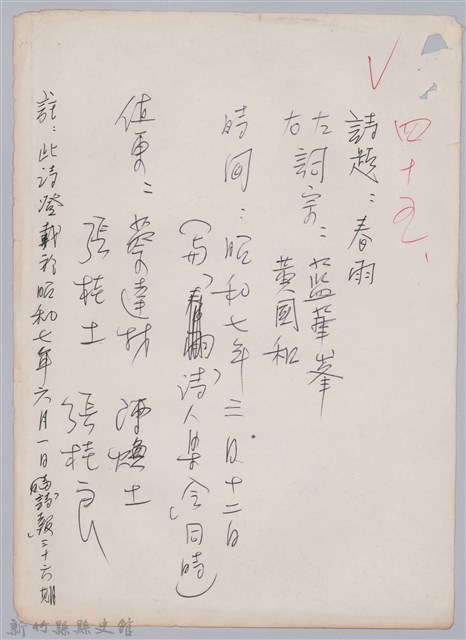 四十五、
詩題：春雨
左詞宗：藍華峯
右詞宗：黃國和
時間：昭和七年三月十二日
（與詩人集會同時）
值東：
張桂土 張桂良
註：此詩登載於昭和七年六月一日 詩報三十六期
新竹縣縣史館